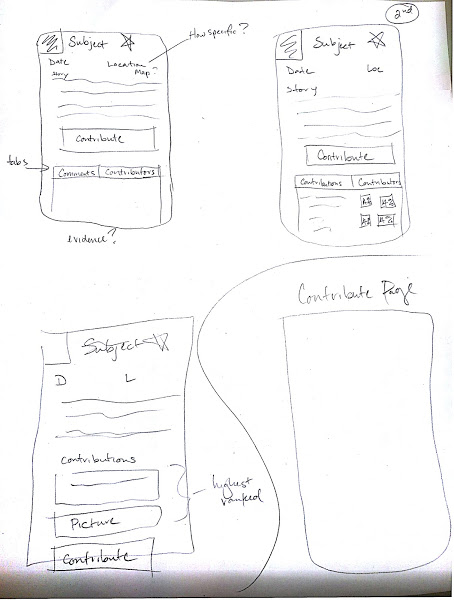 2nd
How specific?
Subject
Date Location
Story Map?
Contribute
tabs
Comments Contributors
evidence?
Subject
Date Loc
Story
Contribute
Contributions Contributors
Subject
D L
Contributions
highest ranked
Picture
Contribute
Contribute Page